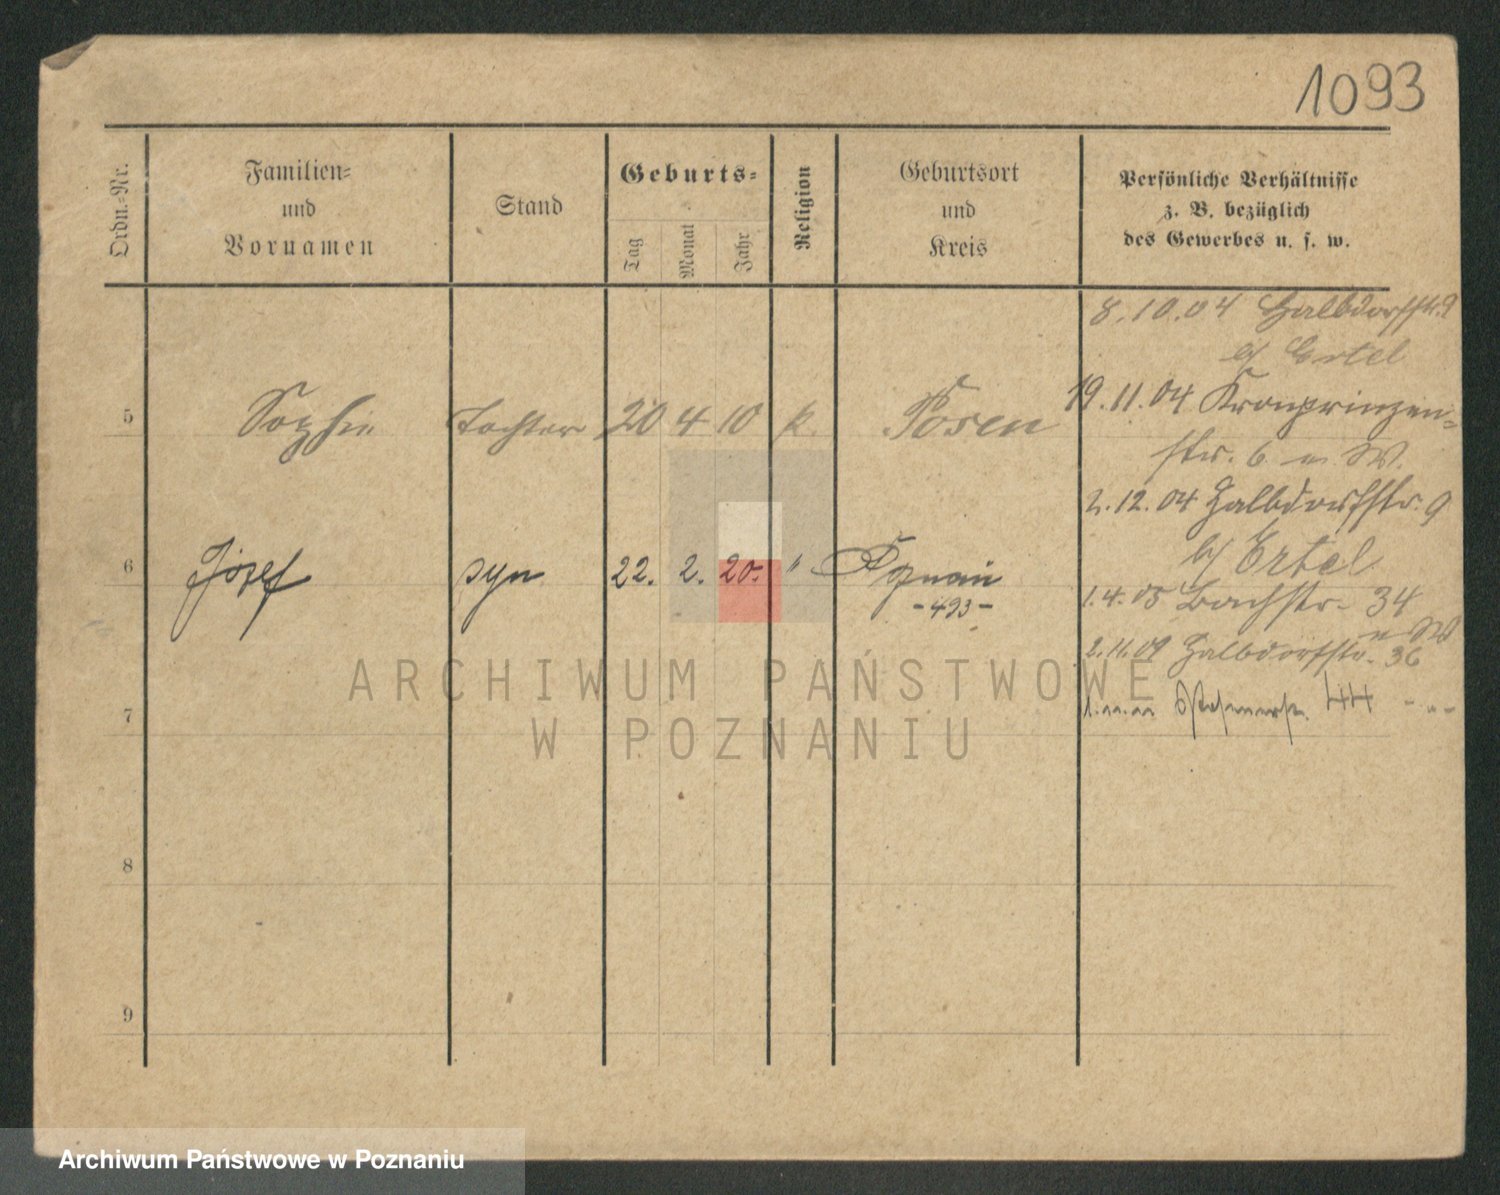 1093
Ordn.-Nr.
Familien-
und
Vornamen
Stand
Geburts-
Tag
Monat
Jahr
Religion
Geburtsort
und
Kreis
Persönliche Verhältnisse
z. B. bezüglich
des Gewerbes u. s. w.
8.10.04 Halbdorfstr. 9
b/ Ertel
5 Sophie Tochter 20 4 10 k. Posen
19.11.04 Kronprinzen-
str. 6 m. W.
2.12.04 Halbdorfstr. 9
b/ Ertel
6 Józef syn 22. 2. 20. " Poznań
-493-
1.4.05 Bachstr. 34
2.11.09 Halbdorfstr. 36
7
44 - " -
8
9
ARCHIWUM PAŃSTWOWE
W POZNANIU
Archiwum Państwowe w Poznaniu